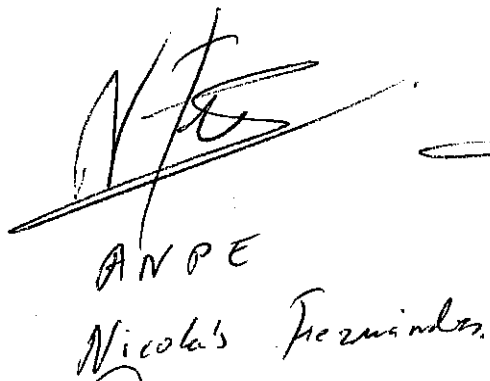 ANPE
Nicolás Fernández.